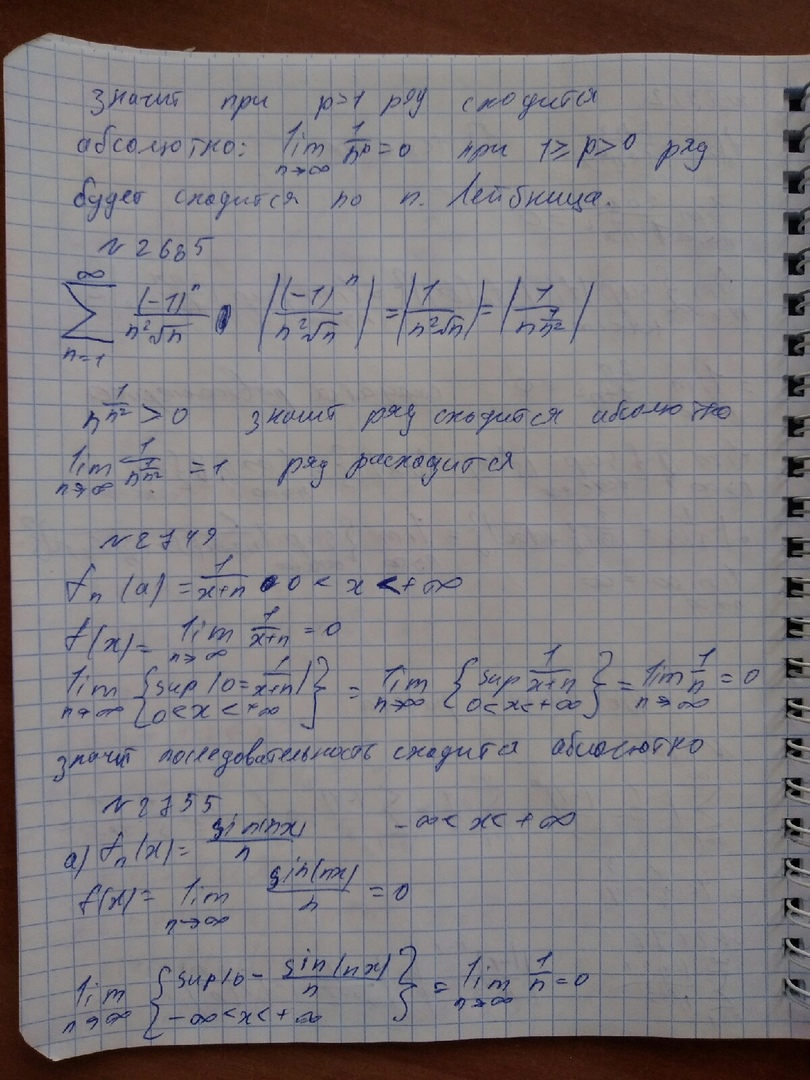 значит при p>1 ряд сходится
абсолютно: lim n→∞ 1/n^p = 0 при 1≥p>0 ряд
будет сходится по п. Лейбница.
№2665
∑ n=1 ∞ (-1)^n/(n²√n) |(-1)^n/(n²√n)| = |1/(n²√n)| = |1/(n n^(1/n²))|
n^(1/n²) > 0 значит ряд сходится абсолютно
lim n→∞ 1/n^(1/n²) = 1 ряд расходится
№2749
fn(a) = 1/(x+n) 0 < x < +∞
f(x) = lim n→∞ 1/(x+n) = 0
lim n→∞ {sup |0 = 1/(x+n)| 0<x<+∞} = lim n→∞ {sup 1/(x+n) 0<x<+∞} = lim n→∞ 1/n = 0
значит последовательность сходится абсолютно
№2755
а) fn(x) = sin(nx)/n -∞<x<+∞
f(x) = lim n→∞ sin(nx)/n = 0
lim n→∞ {sup |0 - sin(nx)/n -∞<x<+∞} = lim n→∞ 1/n = 0